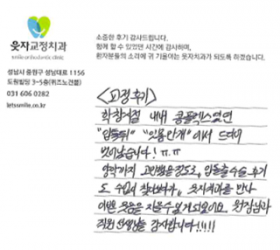 웃자교정치과
소중한 후기 감사드립니다.
함께 할 수 있었던 시간에 감사하며,
환자분들의 소리에 귀 기울이는 웃자치과가 되도록 하겠습니다.
성남시 중원구 성남대로 1156
도원빌딩 3~5층(퀴즈노건물)
031 606 0282
letssmile.co.kr
<교정 후기>
학창시절 내내 콤플렉스였던
"돌출입" "잇몸만개"에서 드디어
벗어났습니다! ㅠㅠ
돌출 수술 후기
도 수없이 찾아보다가, 웃자치과를 만나
이쁜 웃음을 지을수 있게 되었어요. 원장님과
직원 선생님들 감사합니다!!!!!